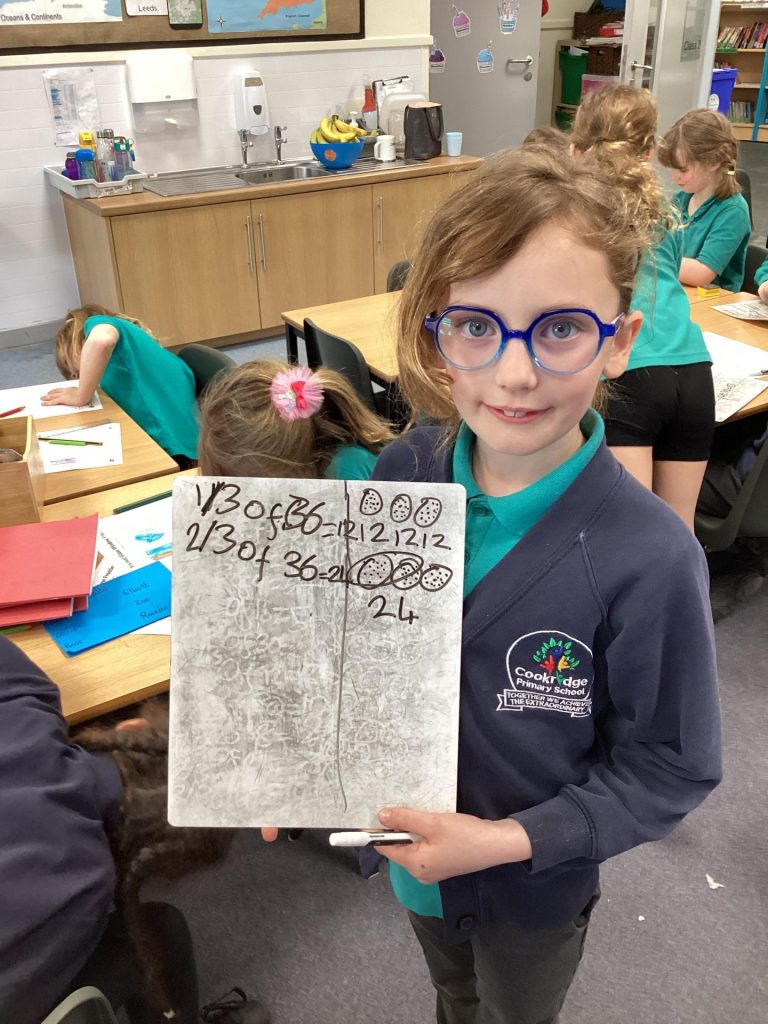 Oceans & Continents
Leeds.
English Channel
Class 3
1/3 of 36 = 12
12 12 12
2/3 of 36 = 24
24
Elliott
Zoe
Rosalie
Rose
Cookridge
Primary School
TOGETHER WE ACHIEVE
THE EXTRAORDINARY